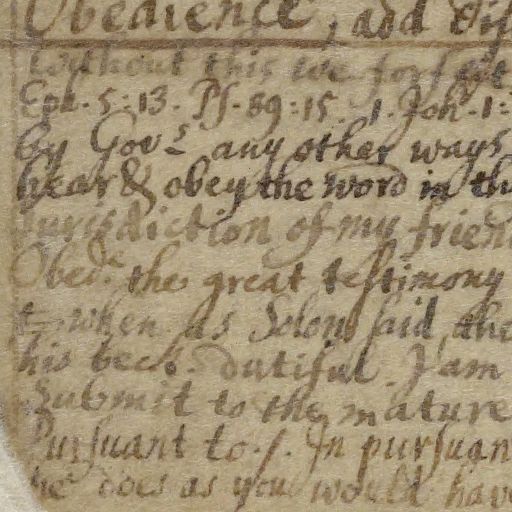 Obedience, add
without this we forfeit
Eph. 5:13. Ps. 89:15. 1. Joh. 1:
by Govrs any other ways
hear & obey the word in
Jurisdiction of my friend
Obedce the great testimony
when as Solon said, the
his beck. dutiful. I am
Submit to the mature
Pursuant to. /. In pursuan
he does as you would have